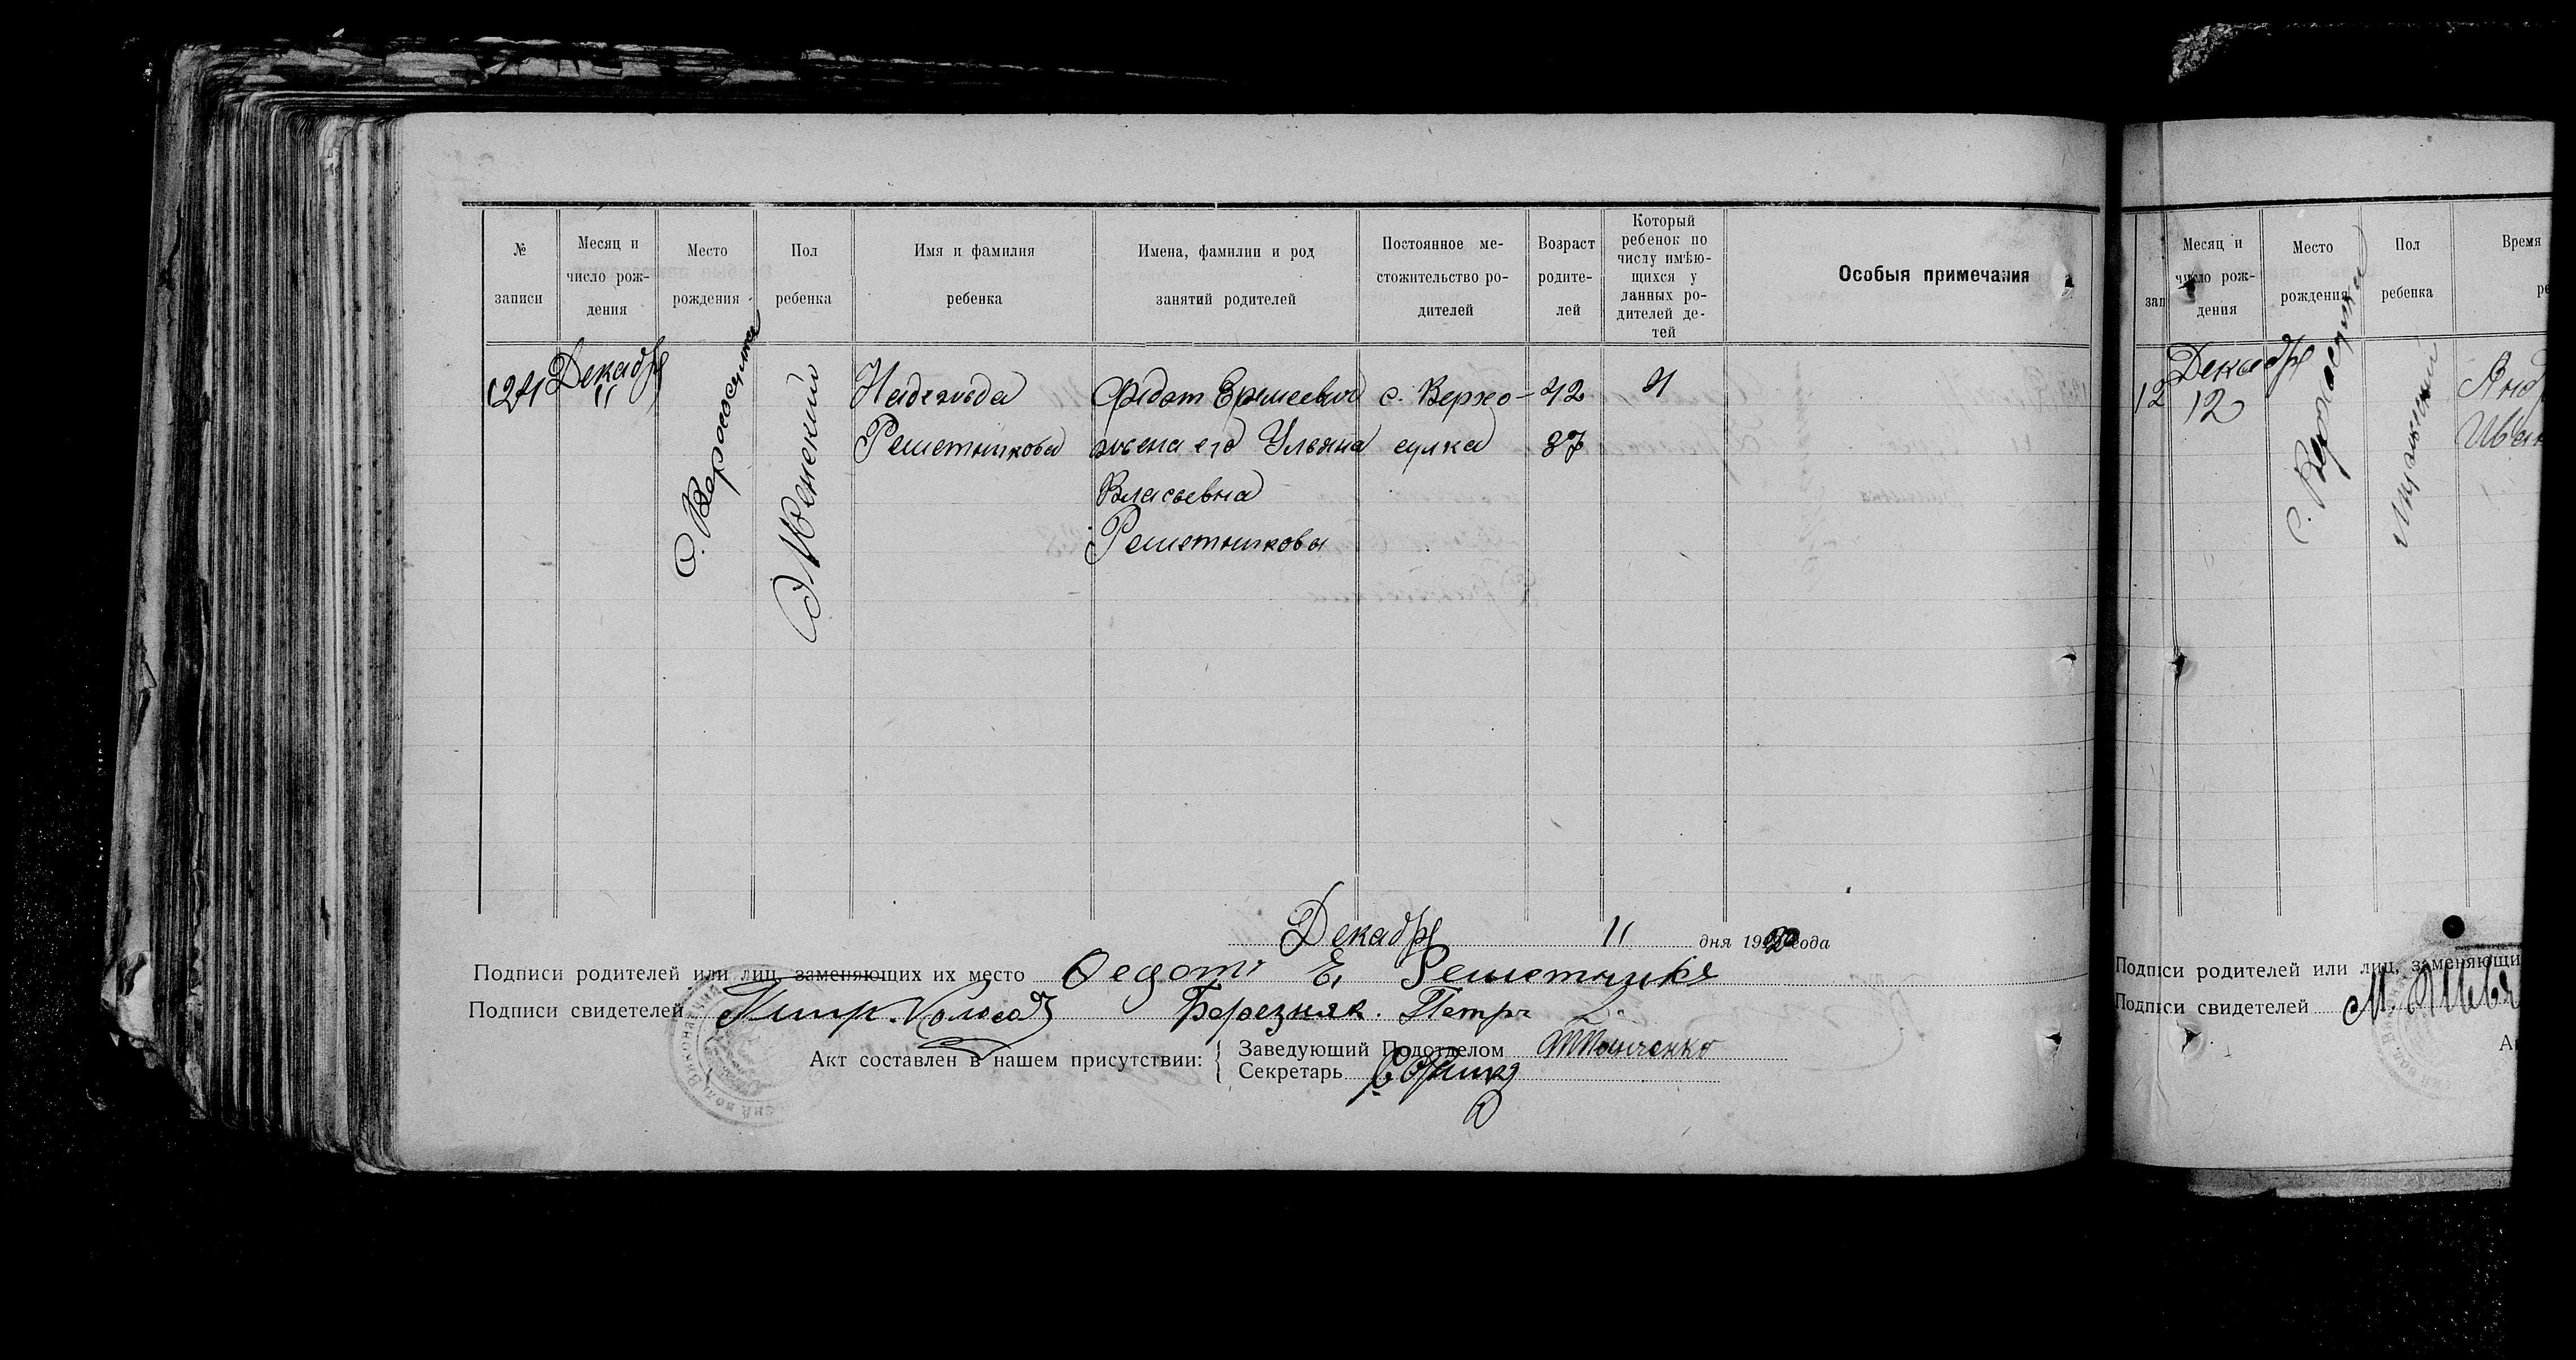 № записи
Месяц и число рож-дения
Место рождения
Пол ребенка
Имя и фамилия ребенка
Имена, фамилии и род занятий родителей
Постоянное ме-стожительство ро-дителей
Возраст родите-лей
Который ребенок по числу имѣю-щихся у данных ро-дителей де-тей
Особыя примечания
Декабр
11
с. Верхосулка
Женский
Надежда
Решетникова
Федот Еремеевич
жена его Ульяна
Власьевна
Решетникова
с. Верхо-
сулка
42
37
4
Декабр 11 дня 1920 года
Подписи родителей или лиц, заменяющих их место Федот Е. Решетник
Подписи свидетелей Березняк. Петр
Акт составлен в нашем присутствии:
Заведующий Подотделом
Секретарь
зап
Месяц и число рож-дения
Место рождения
Пол ребенка
Время
12
Декабр
12
с. Верхосулка
Мужеский
Подписи родителей или лиц, заменяющи
Подписи свидетелей